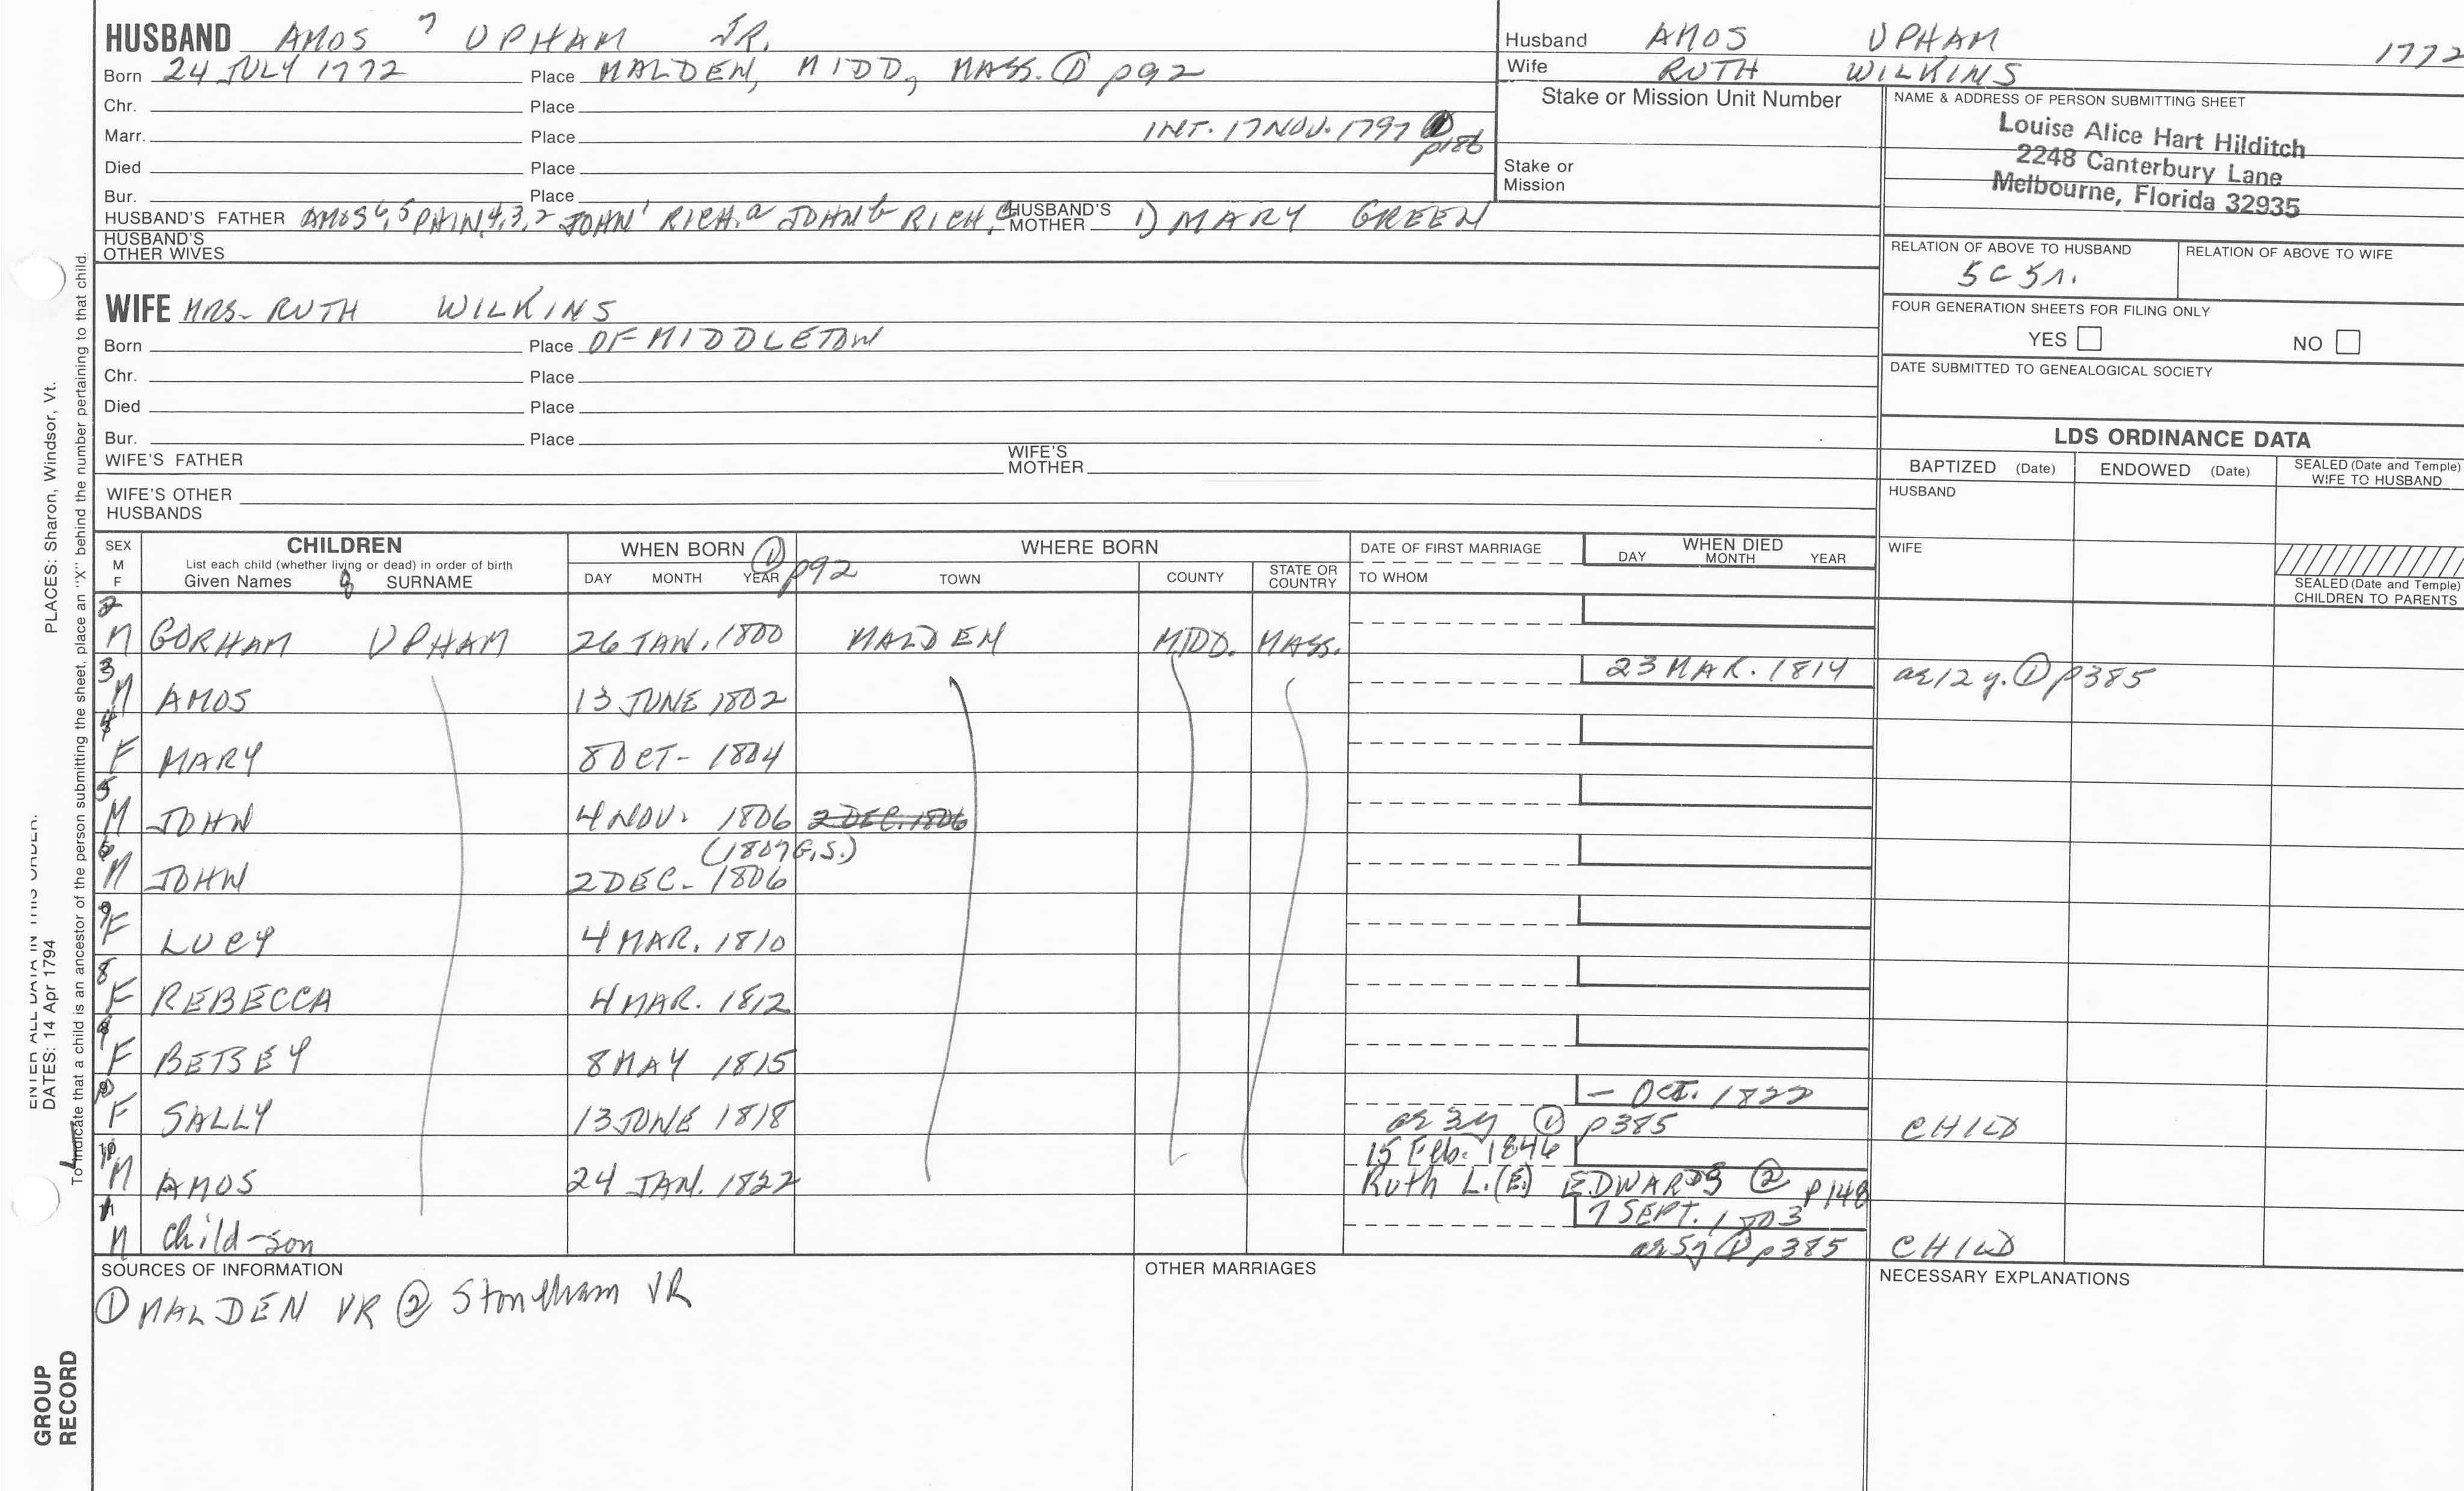 HUSBAND AMOS 7 UPHAM JR.
Born 24 JULY 1772 Place MALDEN, MIDD, MASS. ① p92
Chr. Place
Marr. Place INT. 17 NOV. 1797 p186
Died Place
Bur. Place
HUSBAND'S FATHER AMOS 6, 5 PHIN. 4, 3, 2 JOHN 1 RICH. a JOHN b RICH. c HUSBAND'S MOTHER 1) MARY GREEN
HUSBAND'S OTHER WIVES
WIFE MRS. RUTH WILKINS
Born Place OF MIDDLETON
Chr. Place
Died Place
Bur. Place
WIFE'S FATHER WIFE'S MOTHER
WIFE'S OTHER HUSBANDS
Husband AMOS UPHAM 1772
Wife RUTH WILKINS
Stake or Mission Unit Number
Stake or Mission
NAME & ADDRESS OF PERSON SUBMITTING SHEET
Louise Alice Hart Hilditch
2248 Canterbury Lane
Melbourne, Florida 32935
RELATION OF ABOVE TO HUSBAND RELATION OF ABOVE TO WIFE
5C5r.
FOUR GENERATION SHEETS FOR FILING ONLY
YES NO
DATE SUBMITTED TO GENEALOGICAL SOCIETY
LDS ORDINANCE DATA
BAPTIZED (Date) ENDOWED (Date) SEALED (Date and Temple) WIFE TO HUSBAND
HUSBAND
WIFE
SEALED (Date and Temple) CHILDREN TO PARENTS
SEX M F CHILDREN WHEN BORN ① p92 WHERE BORN DATE OF FIRST MARRIAGE WHEN DIED
List each child (whether living or dead) in order of birth
Given Names 8 SURNAME DAY MONTH YEAR TOWN COUNTY STATE OR COUNTRY TO WHOM DAY MONTH YEAR
2 M GORHAM UPHAM 26 JAN. 1800 MALDEN MIDD. MASS.
3 M AMOS 13 JUNE 1802 23 MAR. 1814 ae 12 y. ① p385
4 F MARY 8 OCT- 1804
5 M JOHN 4 NOV. 1806 2 DEC. 1806
(1807 G.S.)
6 M JOHN 2 DEC- 1806
F LUCY 4 MAR. 1810
8 F REBECCA 4 MAR. 1812
F BETSEY 8 MAY 1815
F SALLY 13 JUNE 1818 - OCT. 1822 ae 3y ① p385 CHILD
10 M AMOS 24 JAN. 1822 15 Feb. 1846
Ruth L. (E.) EDWARDS ② p148
11 M child-son 7 SEPT. 1803
ae 5y ① p385 CHILD
SOURCES OF INFORMATION OTHER MARRIAGES NECESSARY EXPLANATIONS
① MALDEN VR ② Stoneham VR
PLACES: Sharon, Windsor, Vt.
ENTER ALL DATA IN THIS ORDER:
DATES: 14 Apr 1794
To indicate that a child is an ancestor of the person submitting the sheet, place an "X" behind the number pertaining to that child.
GROUP
RECORD